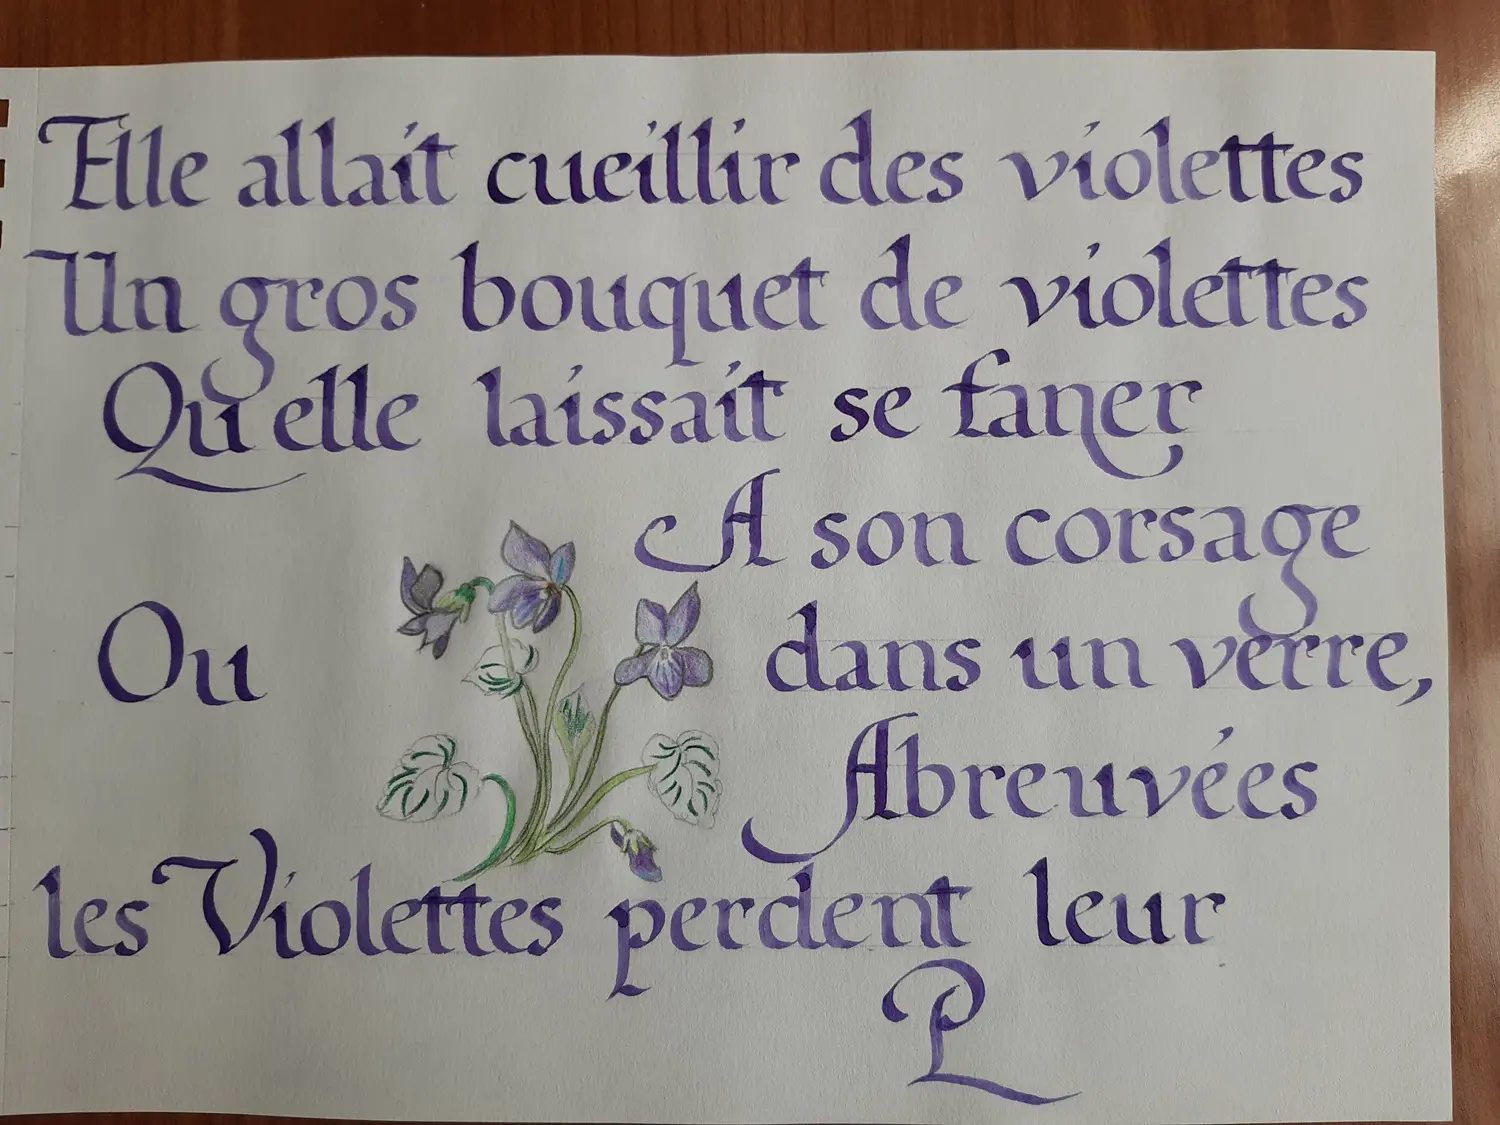 Elle allait cueillir des violettes
Un gros bouquet de violettes
Qu'elle laissait se faner
A son corsage
Ou dans un verre,
Abreuvées
les Violettes perdent leur
P